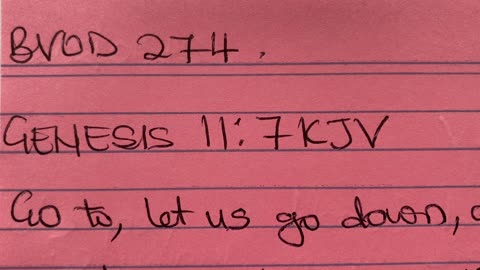 BVOD 274.
GENESIS 11:7 KJV
Go to, let us go down,